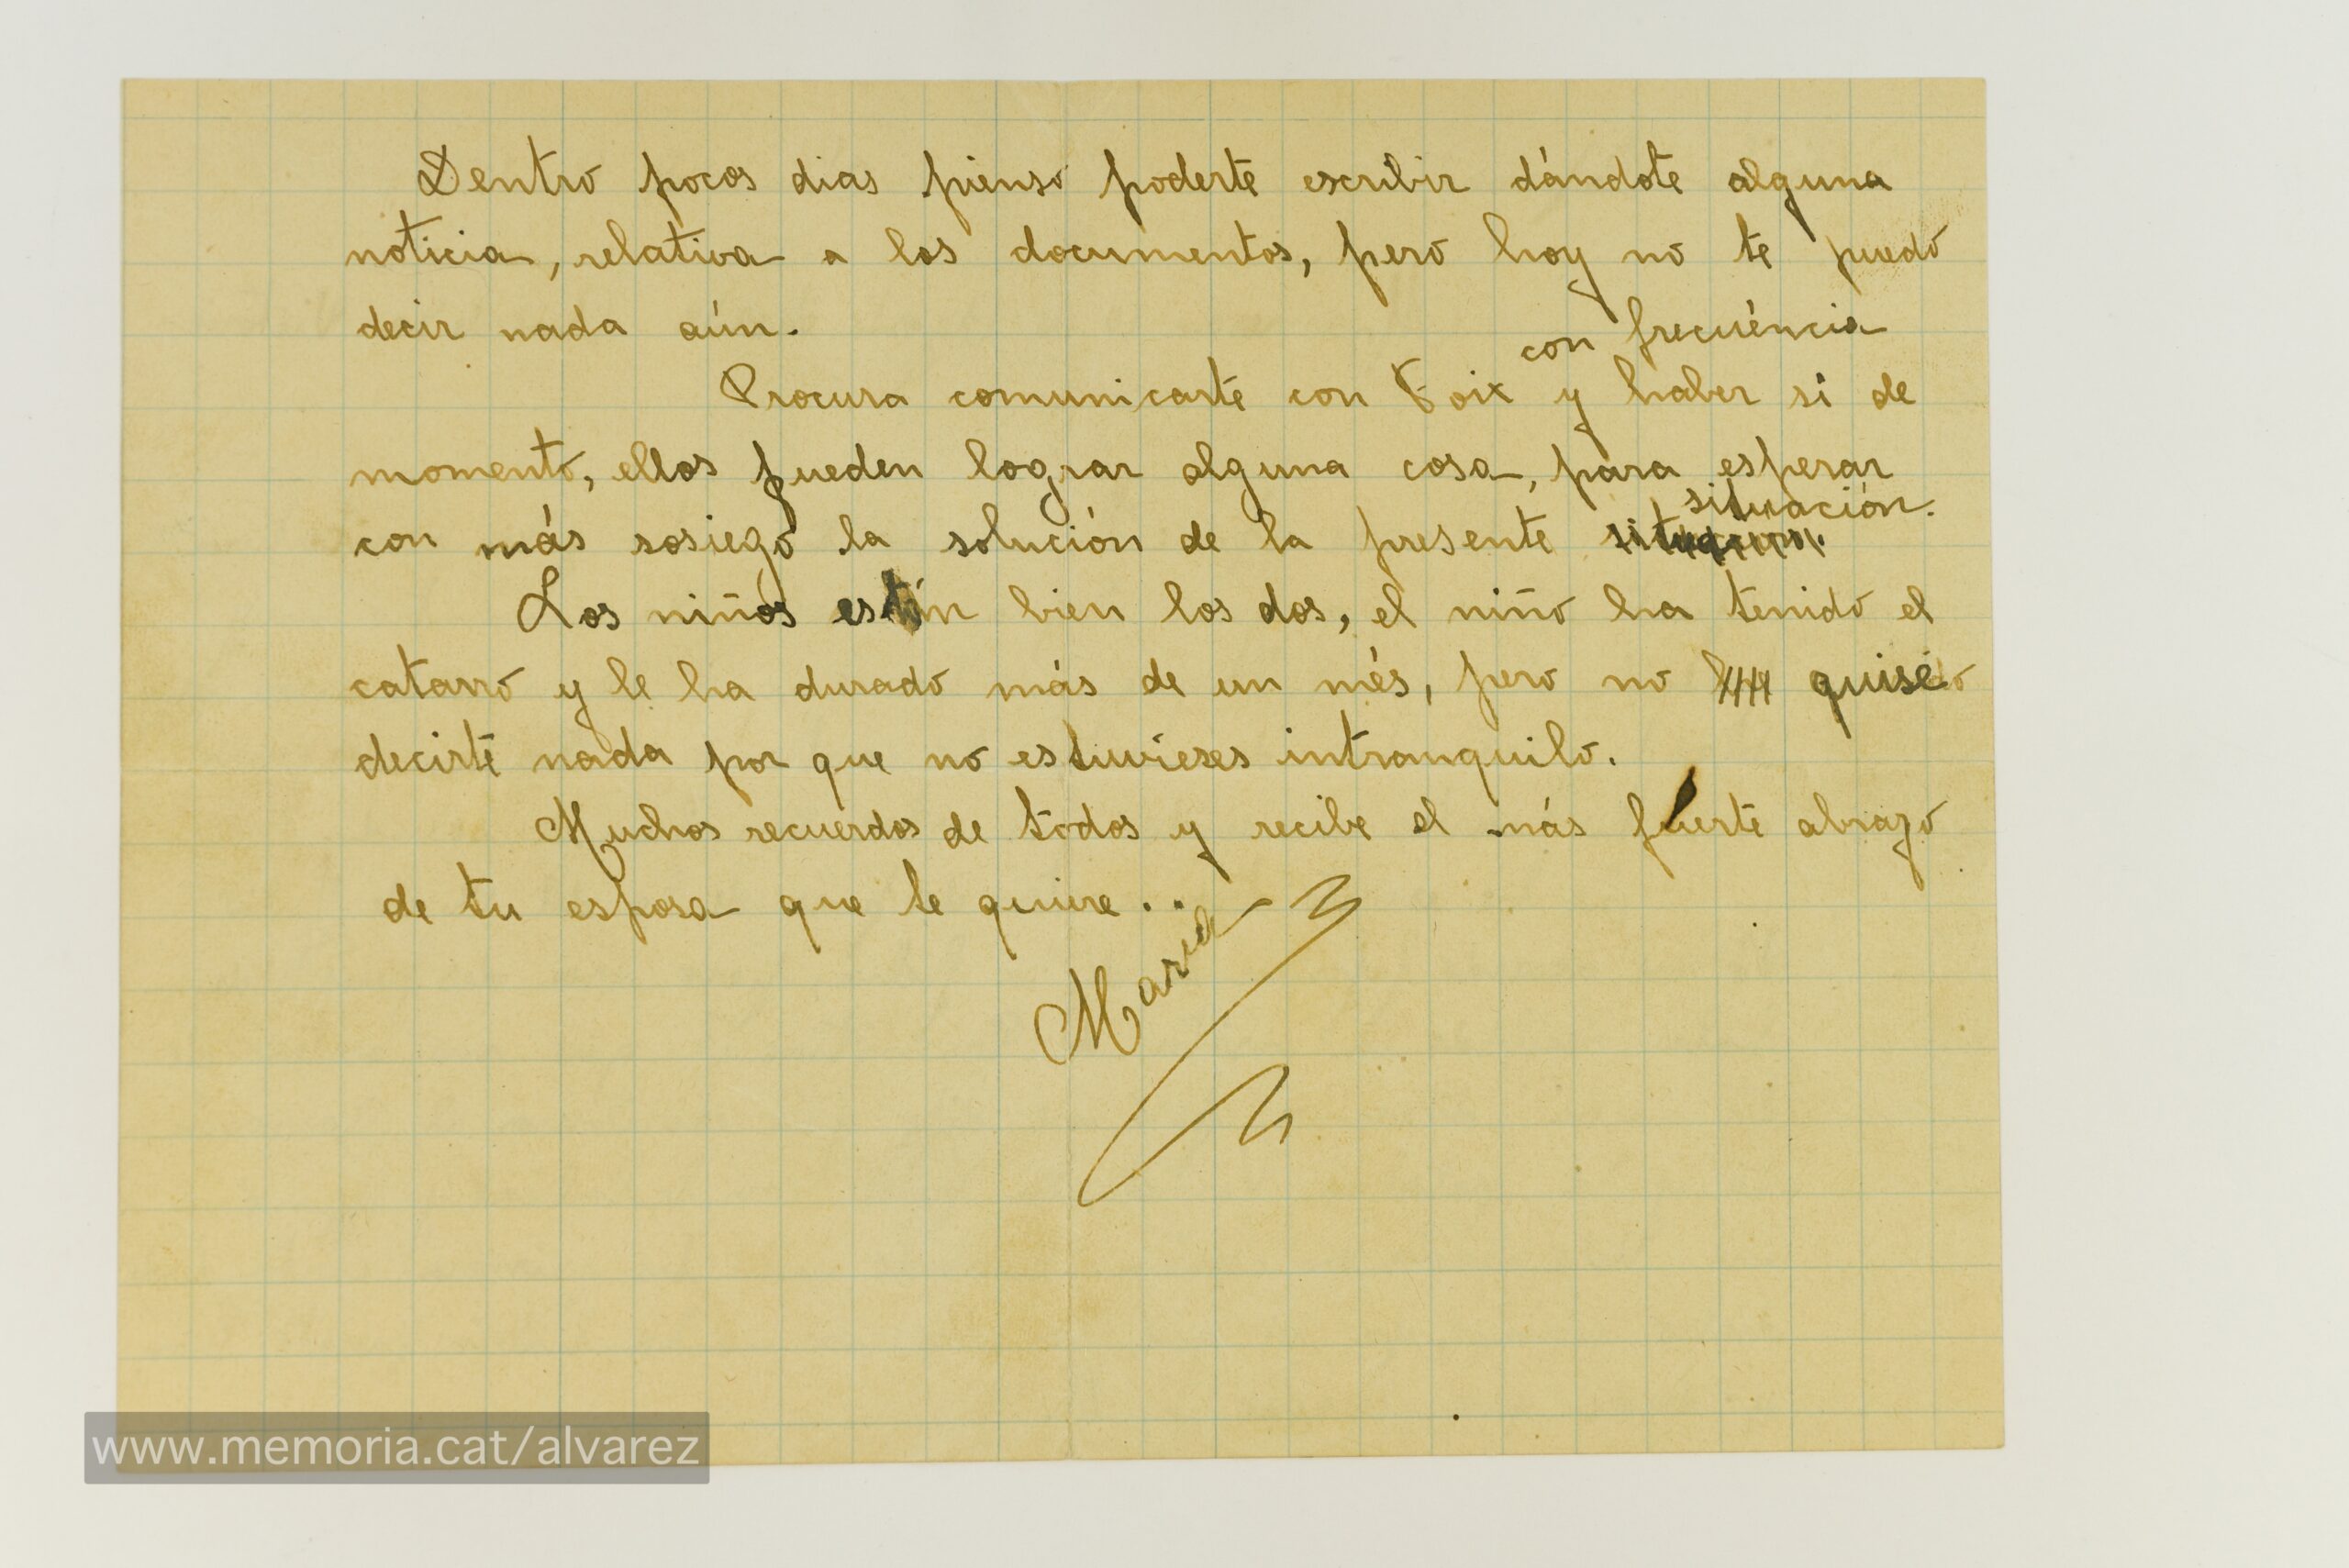 Dentro pocos dias pienso poderte escribir dándote alguna
noticia, relativa a los documentos, pero hoy no te puedo
decir nada aún.
con frecuéncia
Procura comunicarte con Foix y haber si de
momento, ellos pueden lograr alguna cosa, para esperar
situación.
con más sosiego la solución de la presente situacion.
Los niños están bien los dos, el niño ha tenido el
catarro y le ha durado más de un més, pero no quise
decirte nada por que no estuvieses intranquilo.
Muchos recuerdos de todos y recibe el más fuerte abrazo
de tu esposa que te quiere..
Maria
www.memoria.cat/alvarez